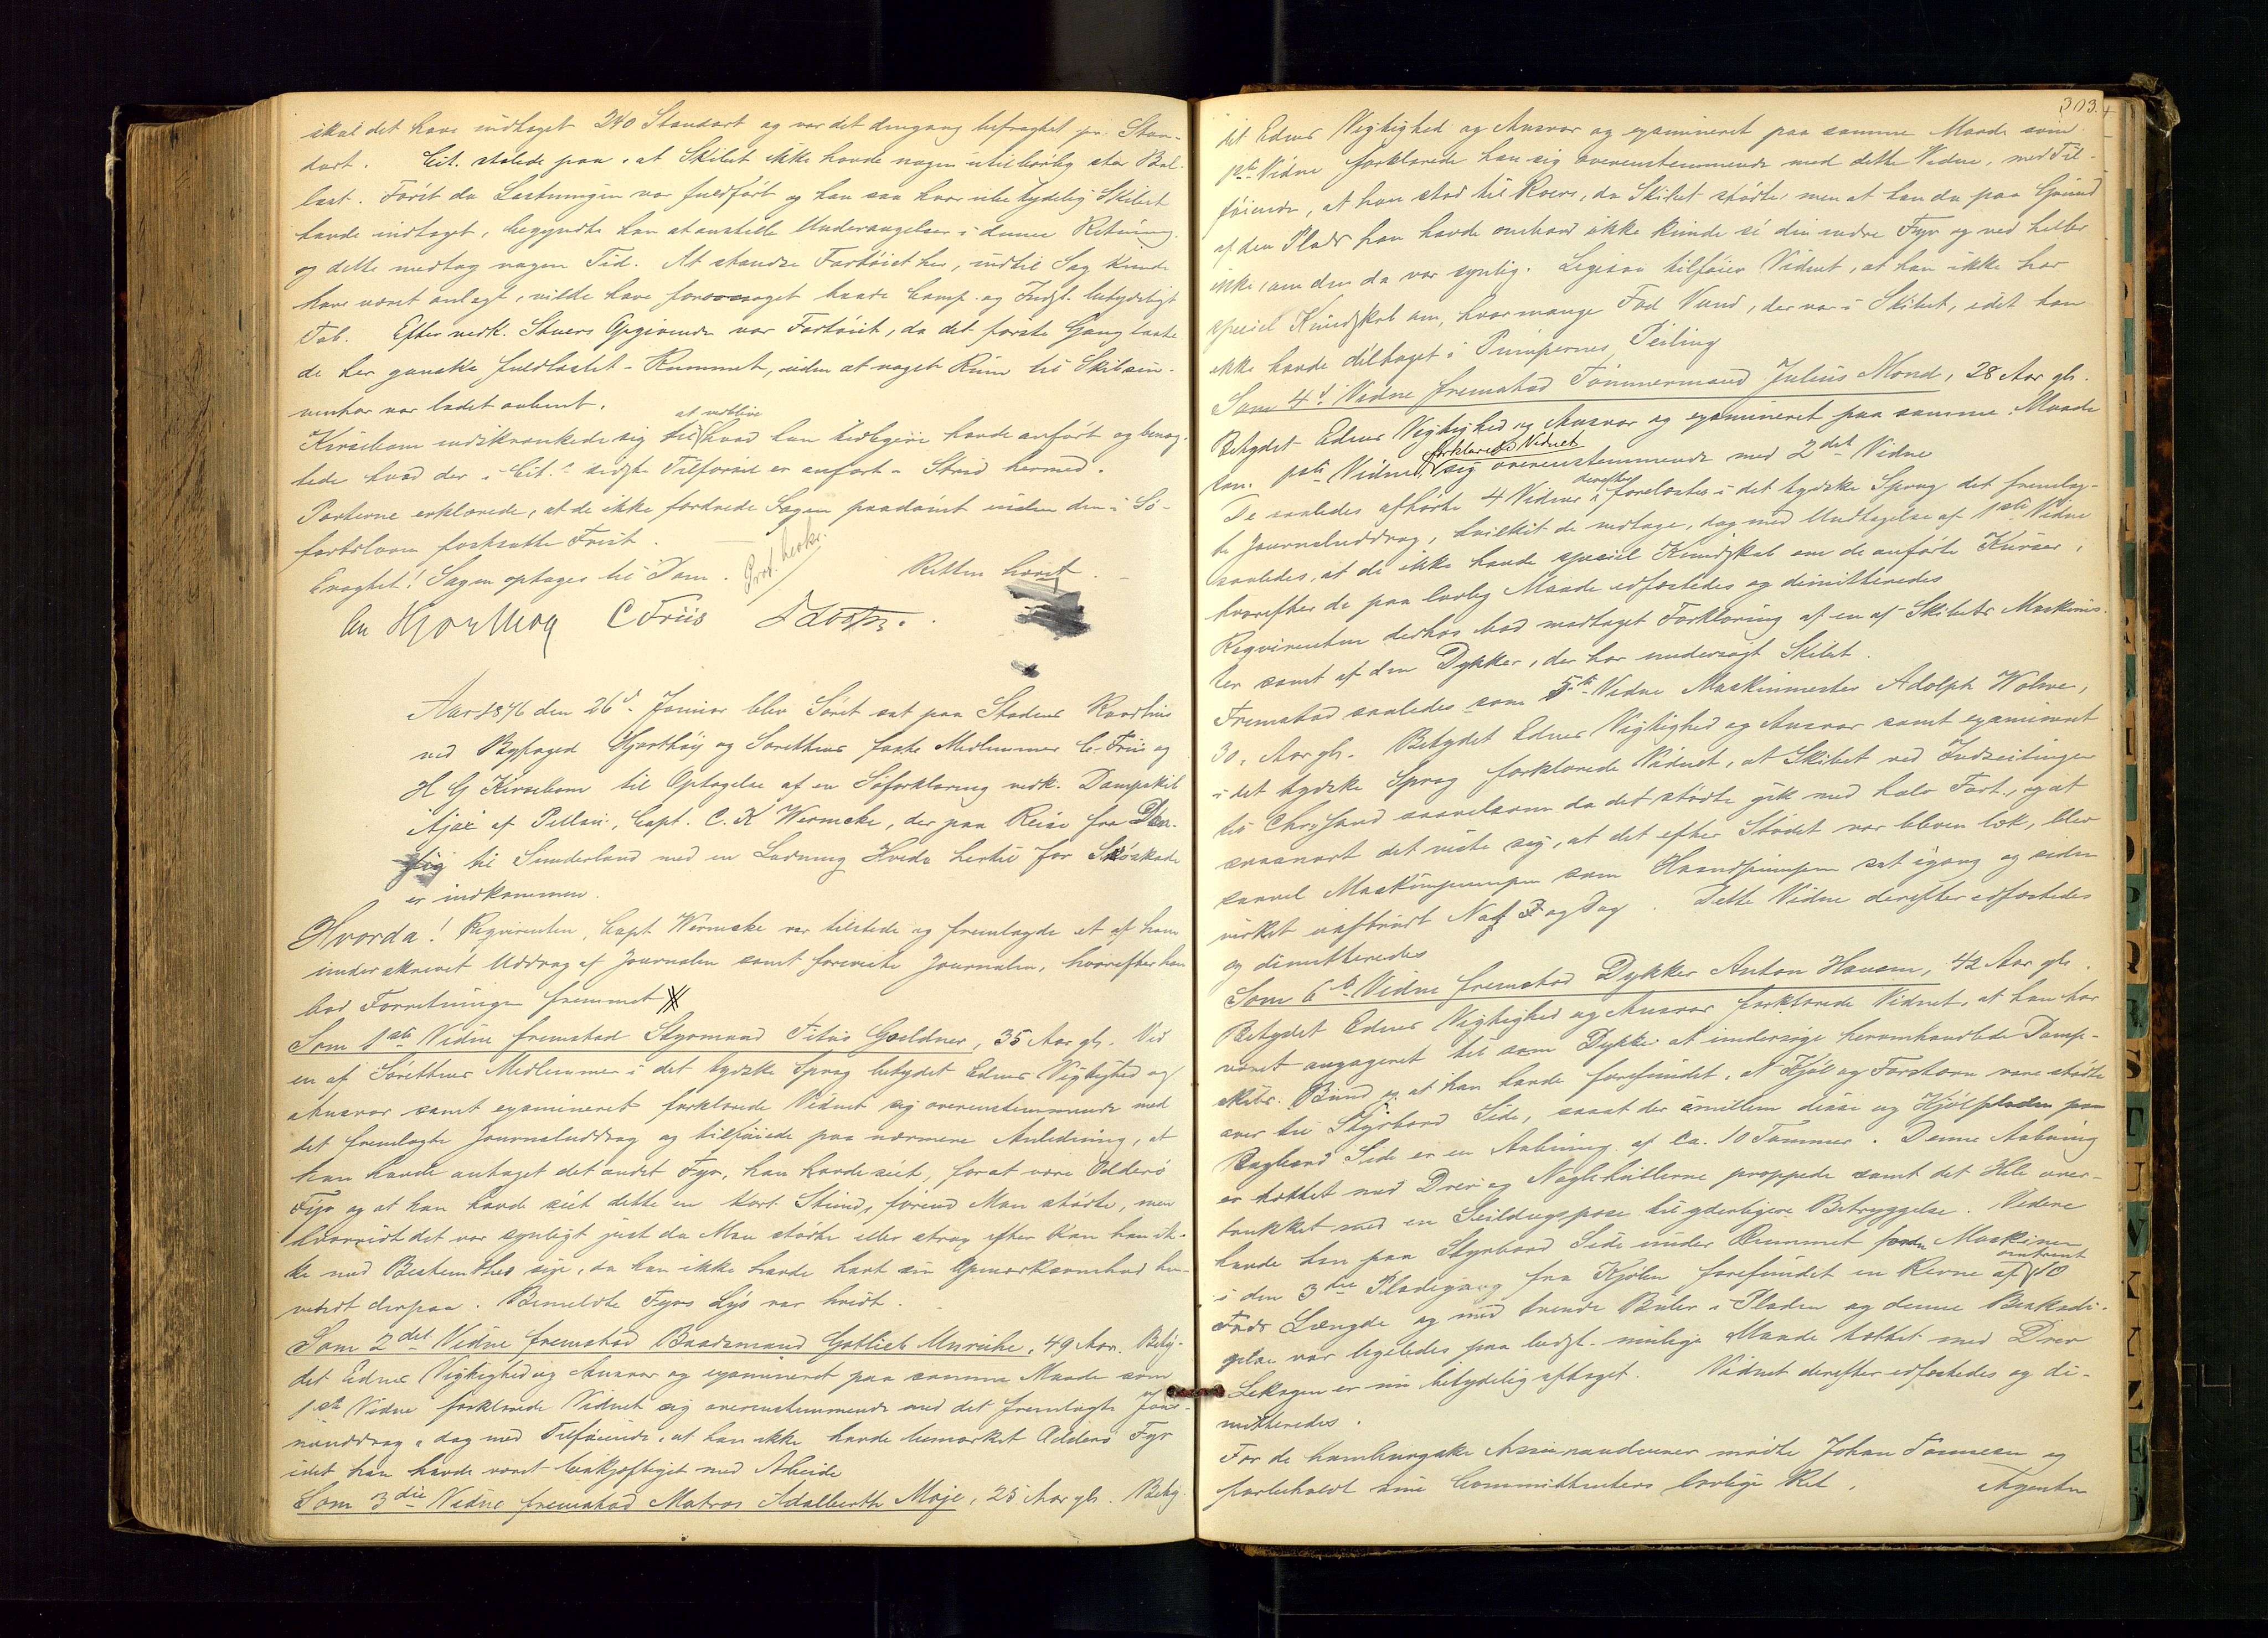 skal det have indtaget 240 Standart og var det dengang befragtet pr. Stan-
dart. Cit. stolede paa, at Skibet ikke havde nogen utilbørlig stor Bal-
last. Først da Lastningen var fuldført og han saa hvor ubetydelig Skibet
havde indtaget, begyndte han at anstille Undersøgelser i denne Retning
og dette medtog nogen Tid. At standse Fartøiet her, indtil Sag kunde
have været anlagt, vilde have foraarsaget baade Comp. og Indst. betydeligt
Tab. Efter vedk. Stuers Opgivende var Fartøiet, da det første Gang laste-
de her ganske fuldlastet - Rummet, uden at noget Rum til Skibsin-
ventar var ladet aabent.
Kirsebom indskrænkede sig til at vedblive hvad han tidligere havde anført og benæg-
tede hvad der i Cit.s sidste Tilførsel er anført i Strid hermed.
Parterne erklærede, at de ikke fordrede Sagen paadømt inden den i Sø-
fartsloven fastsatte Frist.
Eragtet! Sagen optages til Dom. Retten hævet.
Chr Hjorthøy C Friis
Aar 1876 den 26d Januar blev Søret sat paa Stadens Raadhus
ved Byfoged Hjorthøy og Sørettens faste Medlemmer C. Friis og
H G Kirsebom til Optagelse af en Søforklaring vedk. Dampskib
Ajax af Pillau, Capt. C. K Wernicke, der paa Reise fra Dan-
zig til Sunderland med en Ladning Hvede hertil for Søskade
er indkommen.
Hvorda! Reqvirenten, Capt Wernicke var tilstede og fremlagde et af ham
underskrevet Uddrag af Journalen samt foreviste Journalen, hvorefter han
bad Forretningen fremmet
Som 1ste Vidne fremstod Styrmand Titus Goeldner, 35 Aar gl. Ved
en af Sørettens Medlemmer i det tydske Sprog betydet Edens Vigtighed og
Ansvar samt examineret forklarede Vidnet sig overensstemmende med
det fremlagte Journaluddrag og tilføiede paa nærmere Anledning, at
han havde antaget det andet Fyr, han havde seet, for at være Odderø
Fyr og at han havde seet dette en kort Stund, førend Man stødte, men
hvorvidt det var synligt just da Man stødte eller strax efter kan han ik-
ke med Bestemthed sige, da han ikke havde havt sin Opmærksomhed hen-
vendt derpaa. Bemeldte Fyrs Lys var hvidt.
Som 2det Vidne fremstod Baadsmand Gottlieb Unruhe, 49 Aar. Bety-
det Edens Vigtighed og Ansvar og examineret paa samme Maade som
1ste Vidne forklarede Vidnet sig overensstemmende med det fremlagte Jour-
naluddrag, dog med Tilføiende, at han ikke havde bemærket Odderø Fyr
idet han havde været beskjæftiget med Arbeide
Som 3die Vidne fremstod Matros Adalberth Moje, 25 Aar gl. Bety-
303.
det Edens Vigtighed og Ansvar og examineret paa samme Maade som
1ste Vidne forklarede han sig overensstemmende med dette Vidne, med Til-
føiende, at han stod til Roers, da Skibet stødte, men at han da paa Grund
af den Plads han havde ombord ikke kunde se den indre Fyr og ved heller
ikke, om den da var synlig. Ligesaa tilføier Vidnet, at han ikke har
speciel Kundskab om, hvor mange Fod Vand, der var i Skibet, idet han
ikke havde deltaget i Pumpernes Peiling
Som 4de Vidne fremstod Tømmermand Julius Mond, 28 Aar gl.
Betydet Edens Vigtighed og Ansvar og examineret paa samme Maade
som 1ste Vidne forklarede Vidnet sig overensstemmende med 2det Vidne
De saaledes afhørte 4 Vidner derefter forelæstes i det tydske Sprog det fremlag-
te Journaluddrag, hvilket de vedtage, dog med Undtagelse af 1ste Vidne
saaledes, at de ikke havde speciel Kundskab om de anførte Kurser,
hvorefter de paa lovlig Maade edfæstedes og dimitteredes
Reqvirenten derhos bad modtaget Forklaring af en af Skibets Maskinis-
ter samt af den Dykker, der har undersøgt Skibet.
Fremstod saaledes som 5te Vidne Maskinmester Adolph Wolme,
30 Aar gl. Betydet Edens Vigtighed og Ansvar samt examineret
i det tydske Sprog forklarede Vidnet, at Skibet ved Indseilingen
til Chr.sand saavelsom da det stødte gik med halv Fart, og at
saasnart det viste sig, at det efter Stødet var bleven læk, blev
saavel Maskinpumpen som Haandpumpen sat igang og siden
virket uafbrudt Nat og Dag. Dette Vidne derefter edfæstedes
og dimitteredes
Som 6te Vidne fremstod Dykker Anton Hansen, 42 Aar gl.
Betydet Edens Vigtighed og Ansvar forklarede Vidnet, at han har
været engageret til som Dykker at undersøge heromhandlede Damp-
skibs Bund og at han havde forefundet, at Kjøl og Forstavn vare stødte
over til Styrbord Side, saaat der imellem disse og Kjølpladen paa
Bagbord Side er en Aabning af ca. 10 Tommer. Denne Aabning
er tættet med Drev og Naglehullerne proppede samt det Hele over-
trukket med en Seildugspose til yderligere Betryggelse. Videre
havde han paa Styrbord Side under Rummet foran Maskinen
i den 3die Pladegang fra Kjølen forefundet en Revne af omtrent 10
Fods Længde og med trende Buler i Pladen og denne Beskadi-
gelse var ligeledes paa bedst mulige Maade tættet med Drev
Lekagen er nu betydelig aftaget. Vidnet derefter edfæstedes og di-
mitteredes.
For de hamburgske Assurandeurer mødte Johan Tønnesen og
forbeholdt sine Committenters lovlige Ret. Agenten